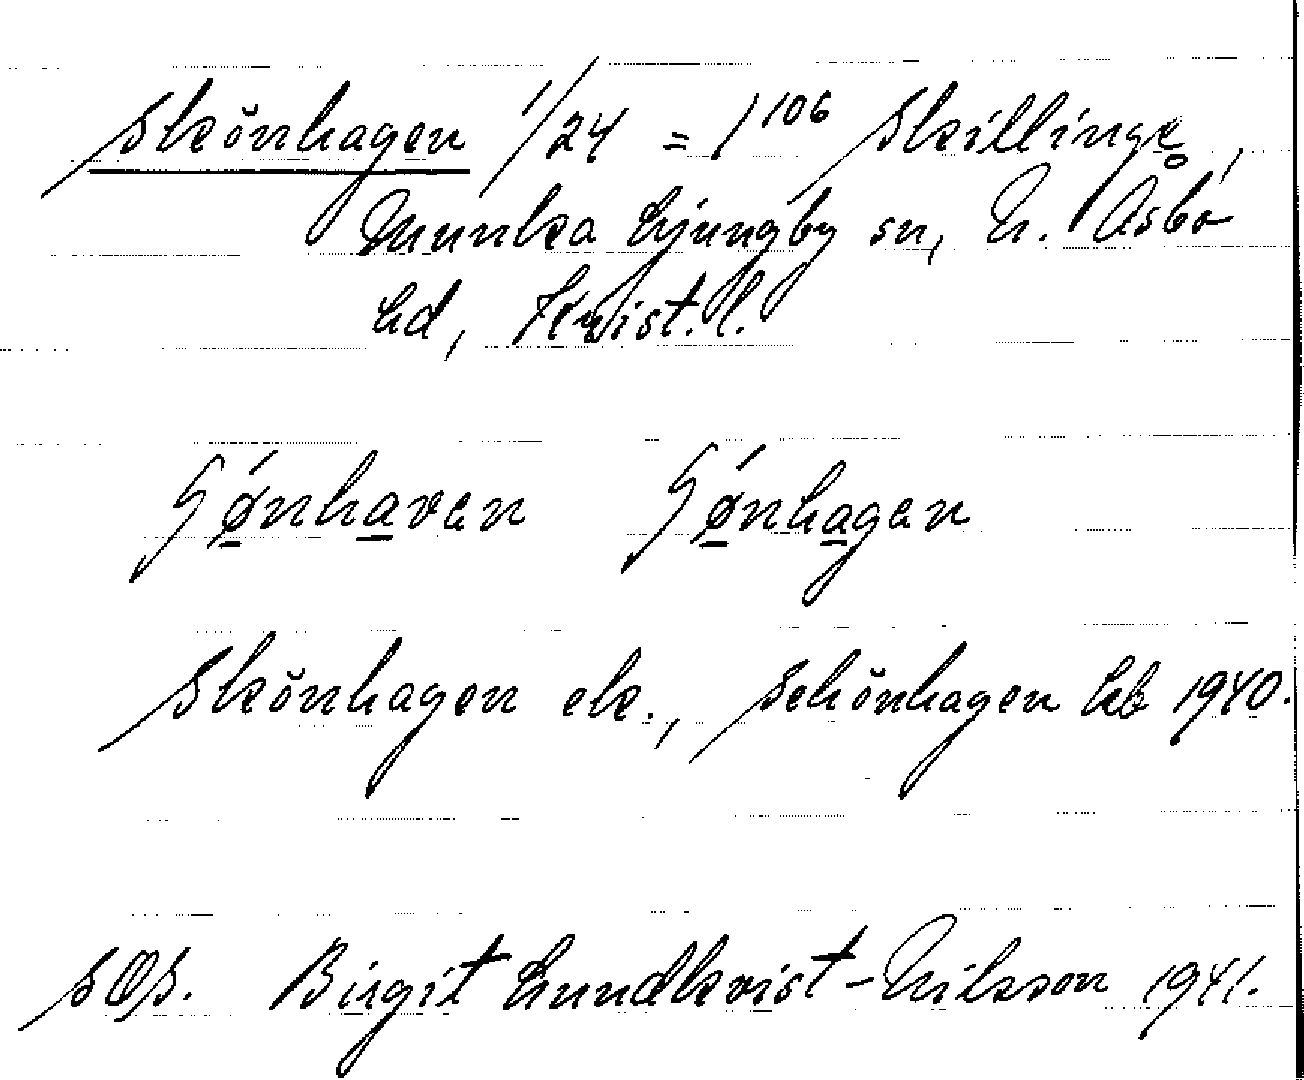 Skönhagen 1/24 = 1¹⁰⁶ Skillinge,
Munka Ljungby sn, N. Åsbo
hd, Krist. l.
ʃǿnhaven ʃǿnhagen
Skönhagen ek., Schönhagen kb 1940.
SOS. Birgit Lundkvist-Nilsson 1941.